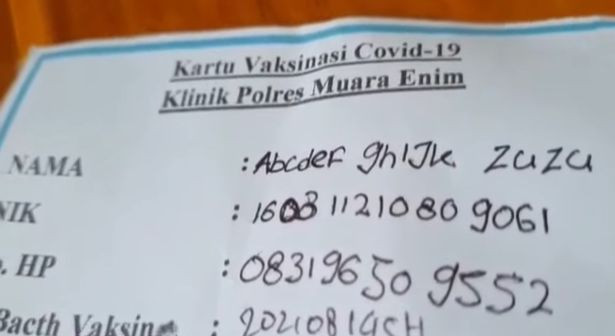 Kartu Vaksinasi Covid-19
Klinik Polres Muara Enim
NAMA : Abcdef ghIJk zuzu
NIK : 160811210809061
. HP : 083196509552
Bacth Vaksin : 20210814CH